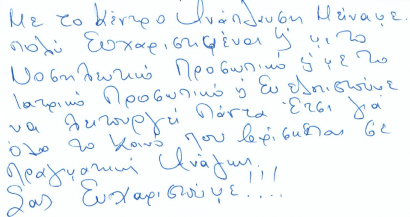 Με το Κέντρο Ανάπλευση Μείναμε.
πολύ Ευχαριστημένοι ή με το
Νοσηλωτικό Προσωπικό ή με το
Ιατρικό Προσωπικό ή Ευελπιστούμε
να λειτουργεί Πάντα Έτσι γιά
όλο το Κοινό που βρίσκεται σε
Πραγματική Ανάγκη.
Σας Ευχαριστούμε!!!....